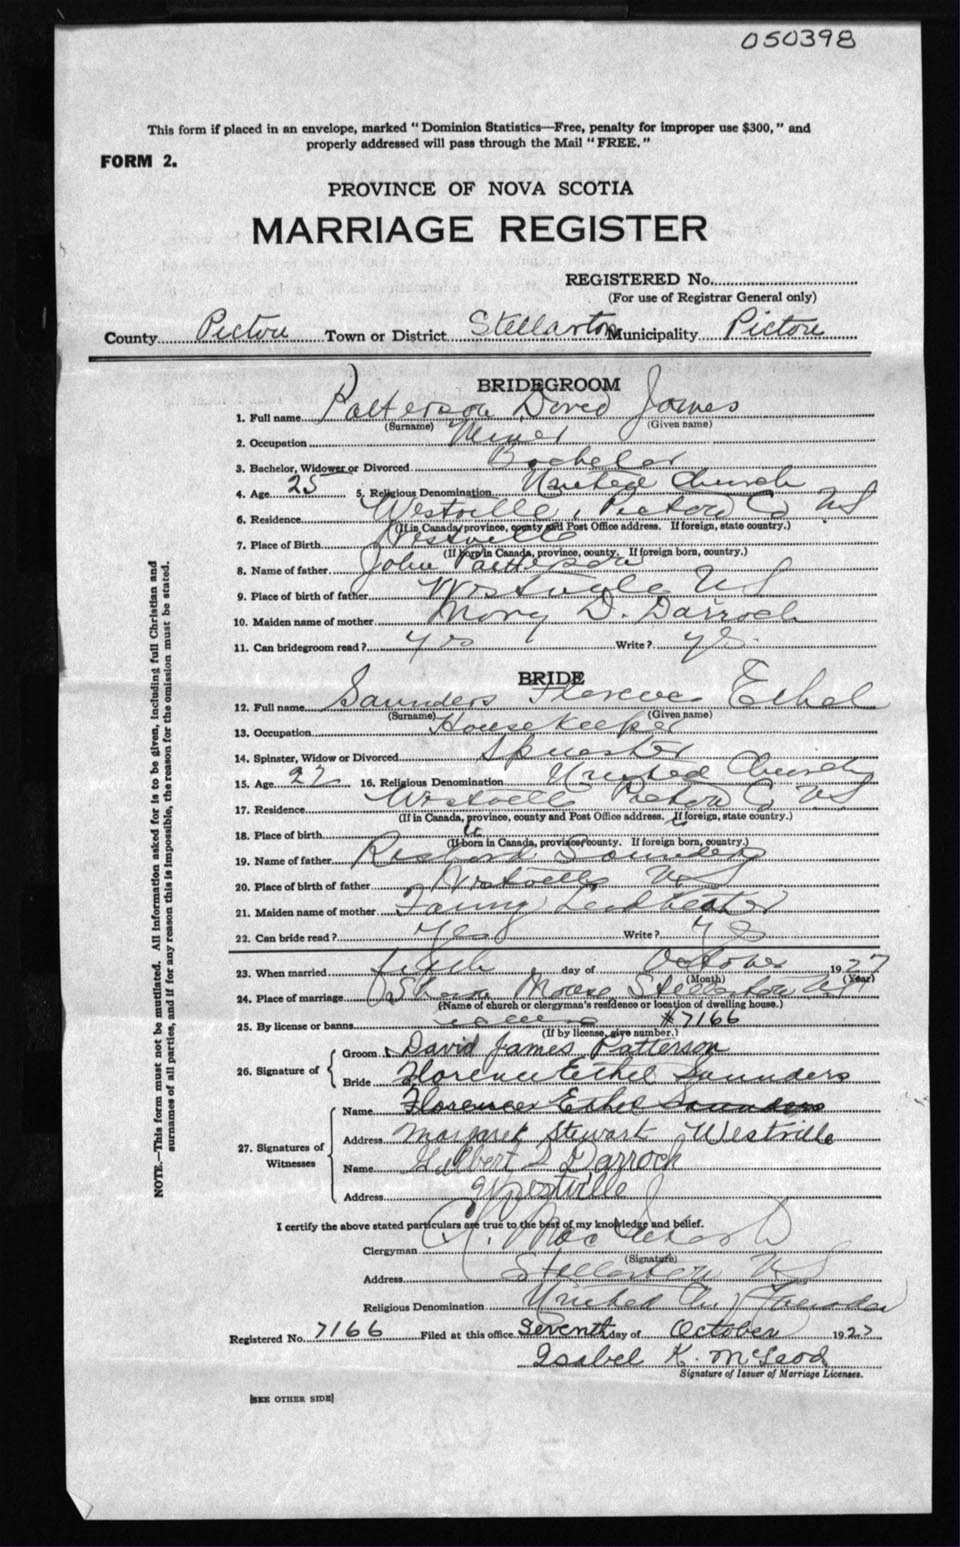 050398
This form if placed in an envelope, marked "Dominion Statistics—Free, penalty for improper use $300," and
properly addressed will pass through the Mail "FREE."
FORM 2.
PROVINCE OF NOVA SCOTIA
MARRIAGE REGISTER
REGISTERED No.
(For use of Registrar General only)
County Pictou Town or District Stellarton Municipality Pictou
BRIDEGROOM
1. Full name Patterson David James
(Surname) (Given name)
2. Occupation Miner
3. Bachelor, Widower or Divorced Bachelor
4. Age 25 5. Religious Denomination United Church
6. Residence Westville, Pictou Co NS
(If in Canada, province, county and Post Office address. If foreign, state country.)
7. Place of Birth Westville
(If born in Canada, province, county. If foreign born, country.)
8. Name of father John Patterson
9. Place of birth of father Westville NS
10. Maiden name of mother Mary D. Darroch
11. Can bridegroom read? yes Write? yes
BRIDE
12. Full name Saunders Florence Ethel
(Surname) (Given name)
13. Occupation Housekeeper
14. Spinster, Widow or Divorced Spinster
15. Age 22 16. Religious Denomination United Church
17. Residence Westville Pictou Co NS
(If in Canada, province, county and Post Office address. If foreign, state country.)
18. Place of birth
(If born in Canada, province, county. If foreign born, country.)
19. Name of father Richard Saunders
20. Place of birth of father Westville NS
21. Maiden name of mother Fanny Leadbeater
22. Can bride read? Yes Write? Yes
23. When married day of October 1927
(Month) (Year)
24. Place of marriage Manse Stellarton NS
(Name of church or clergyman's residence or location of dwelling house.)
25. By license or banns #7166
(If by license, give number.)
26. Signature of
Groom David James Patterson
Bride Florence Ethel Saunders
27. Signatures of Witnesses
Name Florence Ethel Saunders
Address Margaret Stewart Westville
Name Darroch
Address Westville
I certify the above stated particulars are true to the best of my knowledge and belief.
Clergyman
(Signature)
Address Stellarton NS
Religious Denomination United Ch of Canada
Registered No. 7166 Filed at this office Seventh day of October 1927
Isabel K. McLeod
Signature of Issuer of Marriage Licenses.
[SEE OTHER SIDE]
NOTE.—This form must not be mutilated. All information asked for is to be given, including full Christian and
surnames of all parties, and if for any reason this is impossible, the reason for the omission must be stated.